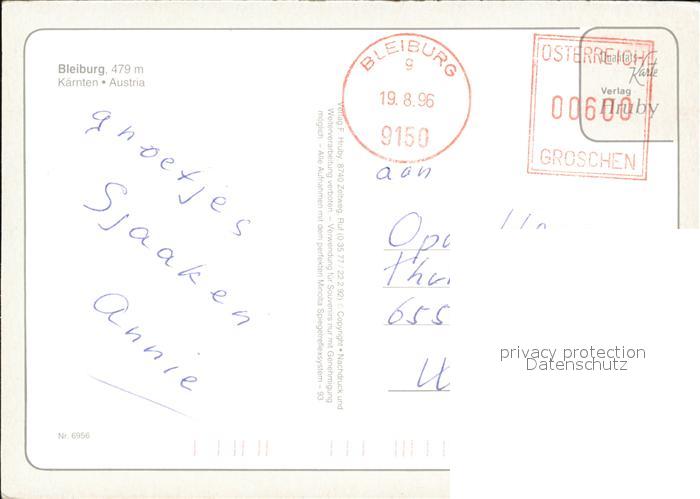 Bleiburg, 479 m
Kärnten • Austria
gnoetjes
Sjaak en
Annie
Verlag F. Hruby, 8740 Zeltweg, Ruf (0 35 77 / 22 2 92) © Copyright • Nachdruck und
Weiterverarbeitung verboten – Verwendung für Souvenirs nur mit Genehmigung
möglich – Alle Aufnahmen mit dem perfekten Minolta Spiegelreflexsystem – 93
BLEIBURG
9
19.8.96
9150
ÖSTERREICH
00600
GROSCHEN
Qualitäts
Karte
Verlag
Hruby
aan
Opa
655
privacy protection
Datenschutz
Nr. 6956